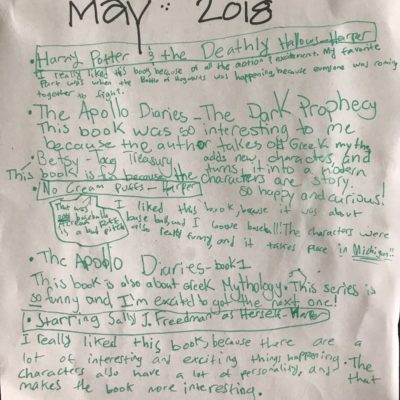 May 2018
• Harry Potter & the Deathly Hallows-Harper
I really liked this book because of all the action & excitement. My favorite
Part was when the Battle of Hogwarts was happening, because everyone was coming
together to fight.
• The Apollo Diaries - The Dark Prophecy
This book was so interesting to me
because the author takes old Greek myths,
adds new characters, and
turns it into a modern
story.
• Betsy-Tacy Treasury
This book is fun because the characters are
so happy and curious!
• No Cream Puffs - Harper
I liked this book, because it was about
base ball, and I loooove baseball! The characters were
also really funny, and it takes place in Michigan!!
That was
baseball
is a bad pitch
• The Apollo Diaries-book 1
This book is also about Greek Mythology. This series is
so funny and I'm excited to get the next one!
• Starring Sally J. Freedman as Herself-Harper
I really liked this book, because there are a
lot of interesting and exciting things happening. The
characters also have a lot of personality, and that
makes the book more interesting.